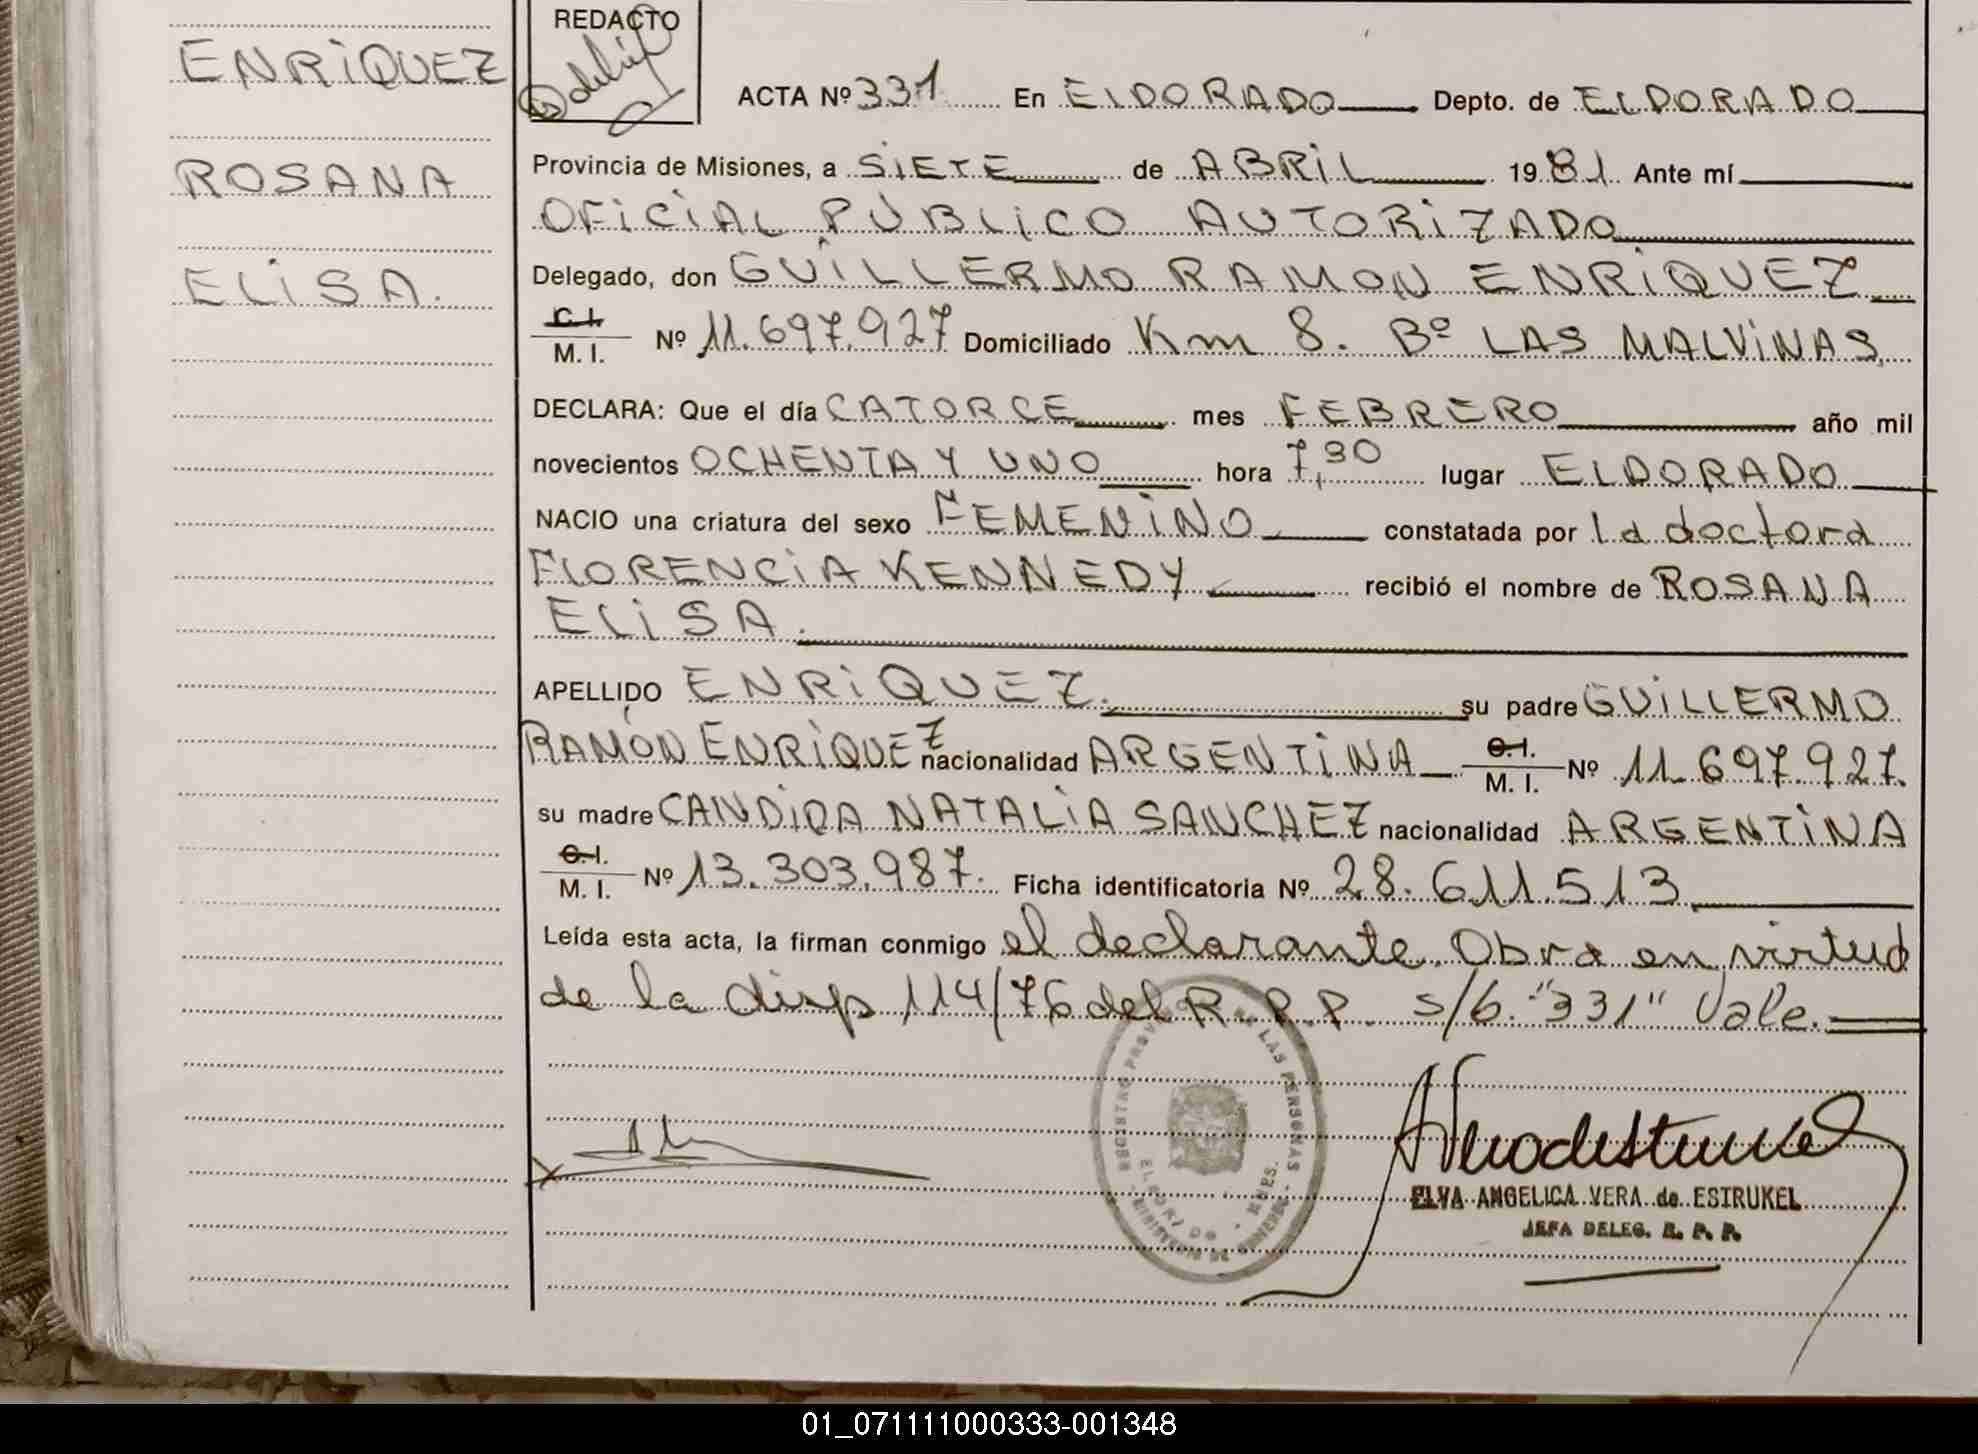 ENRIQUEZ
ROSANA
ELISA.
REDACTO
ACTA Nº 331 En ELDORADO Depto. de ELDORADO
Provincia de Misiones, a SIETE de ABRIL 1981 Ante mí
OFICIAL PÚBLICO AUTORIZADO
Delegado, don GUILLERMO RAMON ENRIQUEZ
C. I.
M. I. Nº 11.697.927 Domiciliado Km 8. Bº LAS MALVINAS,
DECLARA: Que el día CATORCE mes FEBRERO año mil
novecientos OCHENTA Y UNO hora 7,30 lugar ELDORADO
NACIO una criatura del sexo FEMENINO constatada por la doctora
FLORENCIA KENNEDY recibió el nombre de ROSANA
ELISA.
APELLIDO ENRIQUEZ. su padre GUILLERMO
RAMÓN ENRIQUEZ nacionalidad ARGENTINA C. I.
M. I. Nº 11.697.927.
su madre CANDIDA NATALIA SANCHEZ nacionalidad ARGENTINA
C. I.
M. I. Nº 13.303.987. Ficha identificatoria Nº 28.611.513
Leída esta acta, la firman conmigo el declarante. Obra en virtud
de la disp 114/76 del R.P.P. s/b. "331" Vale.
REGISTRO PROV. DE LAS PERSONAS
ELDORADO - MNES.
MINISTERIO DE GOBIERNO
ELVA ANGELICA VERA de ESTRUKEL
JEFA DELEG. R. P. P.
01_071111000333-001348